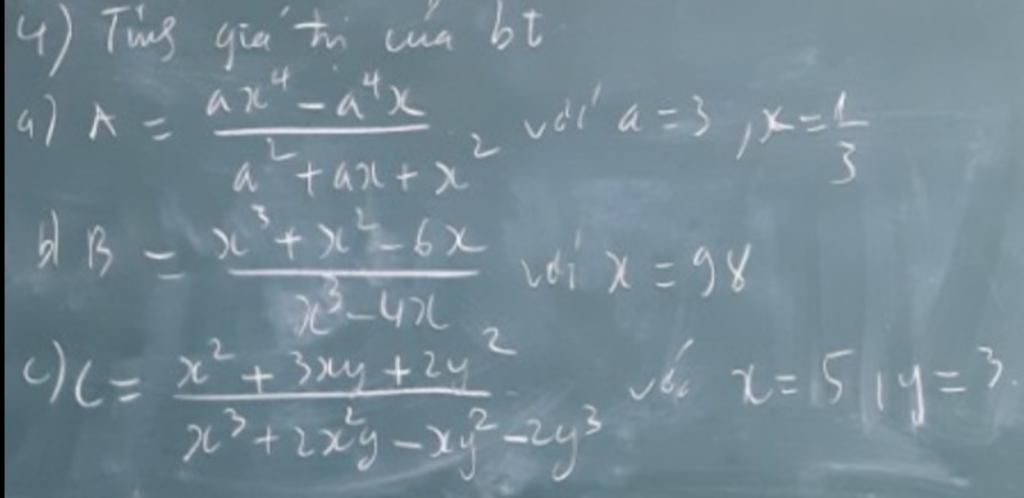 4) Tính giá trị của bt
a) A = (ax⁴ - a⁴x)/(a² + ax + x²) với a = 3, x = 1/3
b) B = (x³ + x² - 6x)/(x³ - 4x) với x = 98
c) C = (x² + 3xy + 2y²)/(x³ + 2x²y - xy² - 2y³) với x = 5, y = 3.